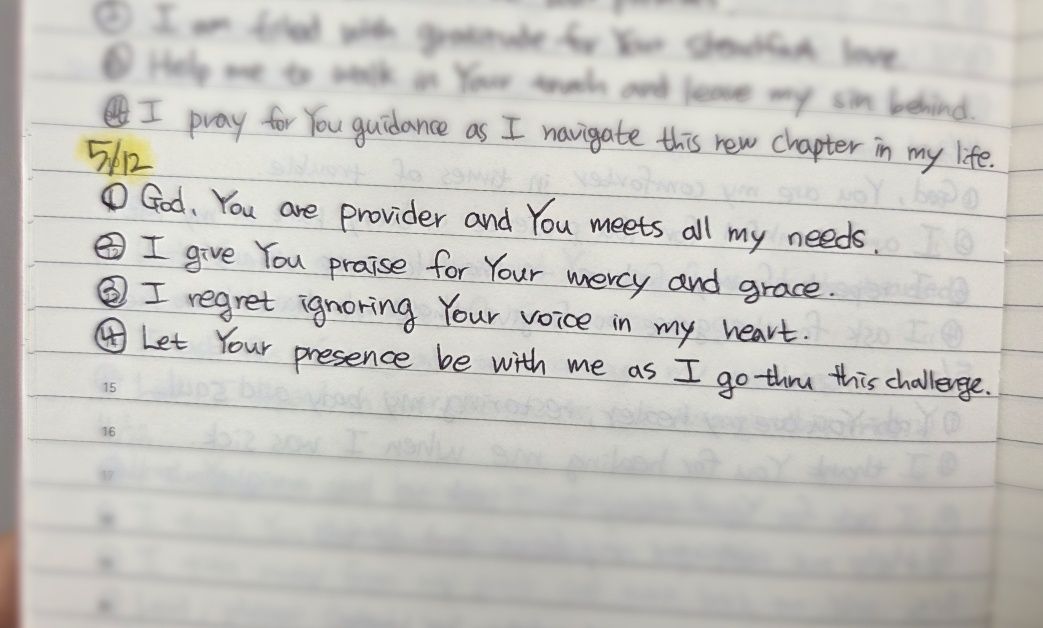 ② I am filled with gratitude for Your steadfast love
③ Help me to walk in Your truth and leave my sin behind.
④ I pray for You guidance as I navigate this new chapter in my life.
5/12
① God, You are provider and You meets all my needs.
② I give You praise for Your mercy and grace.
③ I regret ignoring Your voice in my heart.
④ Let Your presence be with me as I go thru this challenge.
15
16
17